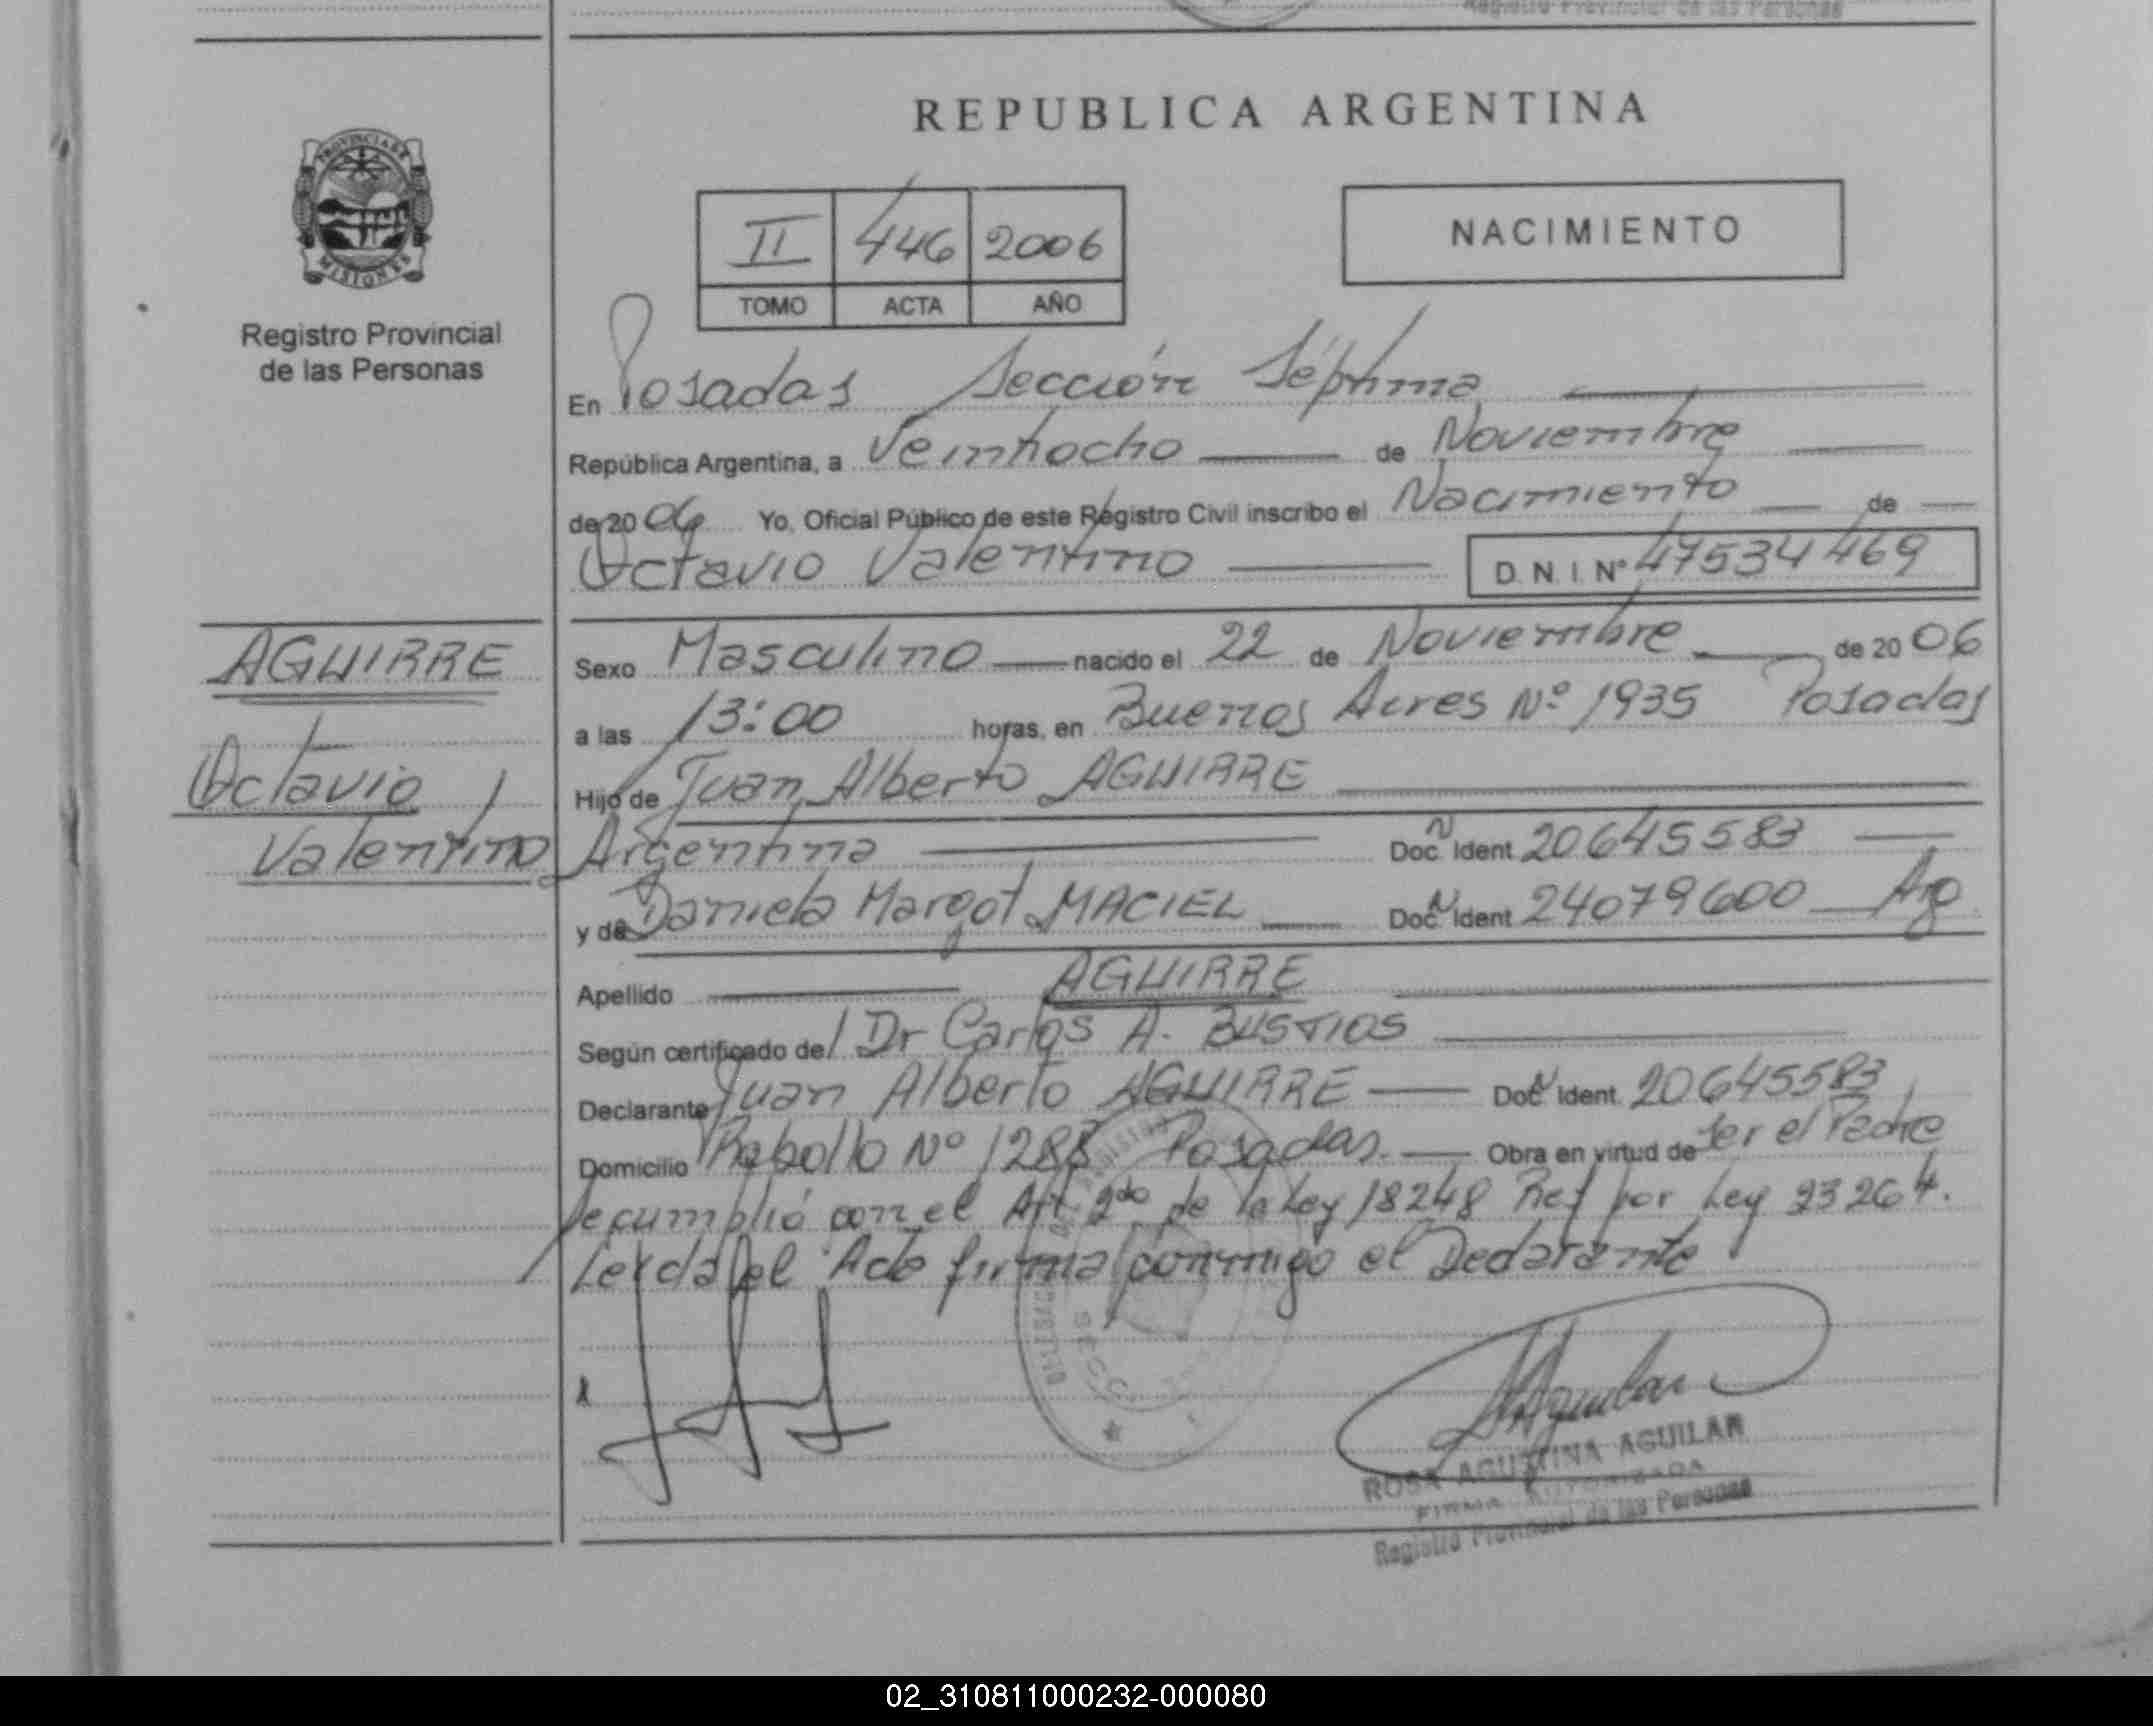 Registro Provincial de las Personas
REPUBLICA ARGENTINA
PROVINCIA DE
MISIONES
Registro Provincial
de las Personas
II 446 2006
TOMO ACTA AÑO
NACIMIENTO
En Posadas Sección Séptima
República Argentina, a Veintiocho de Noviembre
de 20 06 Yo, Oficial Público de este Registro Civil inscribo el Nacimiento de
Octavio Valentino D.N.I. Nº 47534469
AGUIRRE
Octavio
Valentino
Sexo Masculino nacido el 22 de Noviembre de 20 06
a las 13:00 horas, en Buenos Aires Nº 1935 Posadas
Hijo de Juan Alberto AGUIRRE
Argentina Doc. N Ident 20645583
y de Daniela Margot MACIEL Doc. N Ident 24079600 Arg
Apellido AGUIRRE
Según certificado de Dr Carlos A. BUSTIOS
Declarante Juan Alberto AGUIRRE Doc. N Ident. 20645583
Domicilio Rabollo Nº 1288 Posadas. Obra en virtud de ser el Padre
Se cumplió con el Art. 2do de la Ley 18248 Ref por Ley 23264.
Leida el Acta firma conmigo el Declarante
ROSA AGUSTINA AGUILAR
FIRMA AUTORIZADA
Registro Provincial de las Personas
02_310811000232-000080